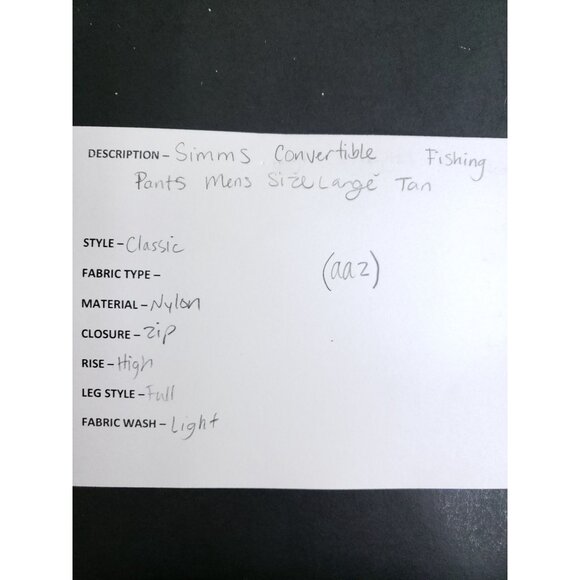 DESCRIPTION – Simms Convertible Fishing
Pants Mens Size Large Tan
STYLE – Classic
FABRIC TYPE –
(aaz)
MATERIAL – Nylon
CLOSURE – Zip
RISE – High
LEG STYLE – Full
FABRIC WASH – Light